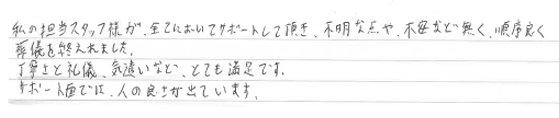 私の担当スタッフ様が、全てにおいてサポートして頂き、不明な点や、不安など無く、順序良く
葬儀を終えれました。
丁寧さと礼儀、気遣いなど、とても満足です。
サポート面では、人の良さが出ています。